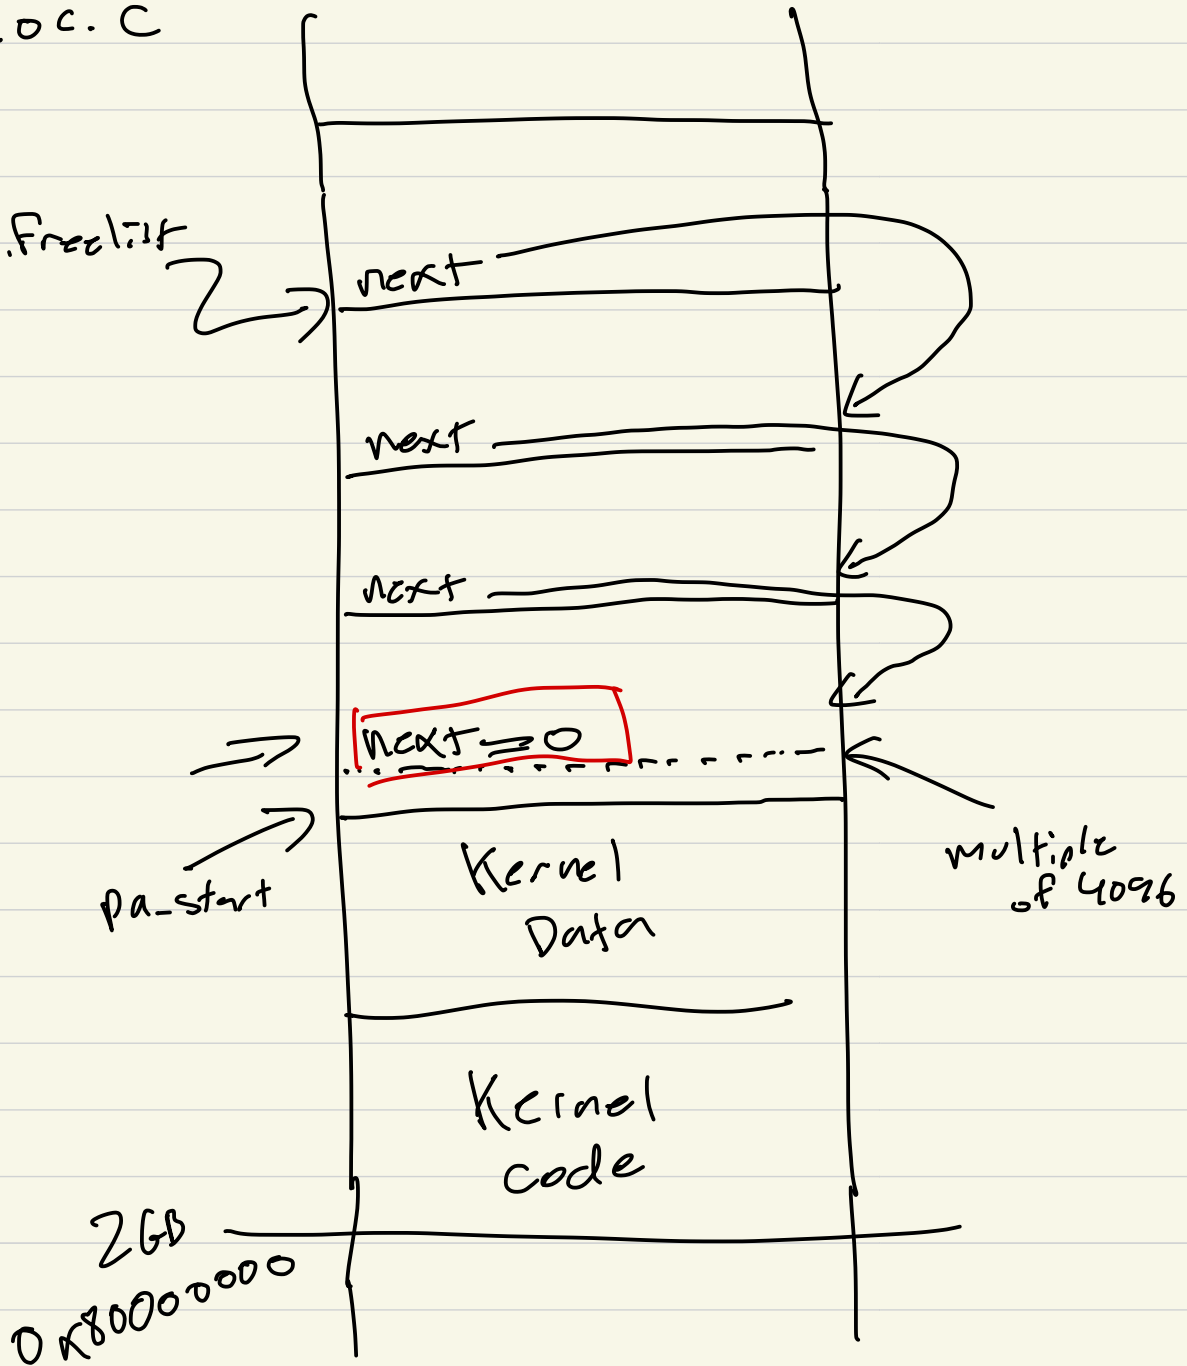 oc. C
.freelist
next
next
next
next = 0
pa_start
multiple
of 4096
Kernel
Data
Kernel
code
2GB
0x80000000